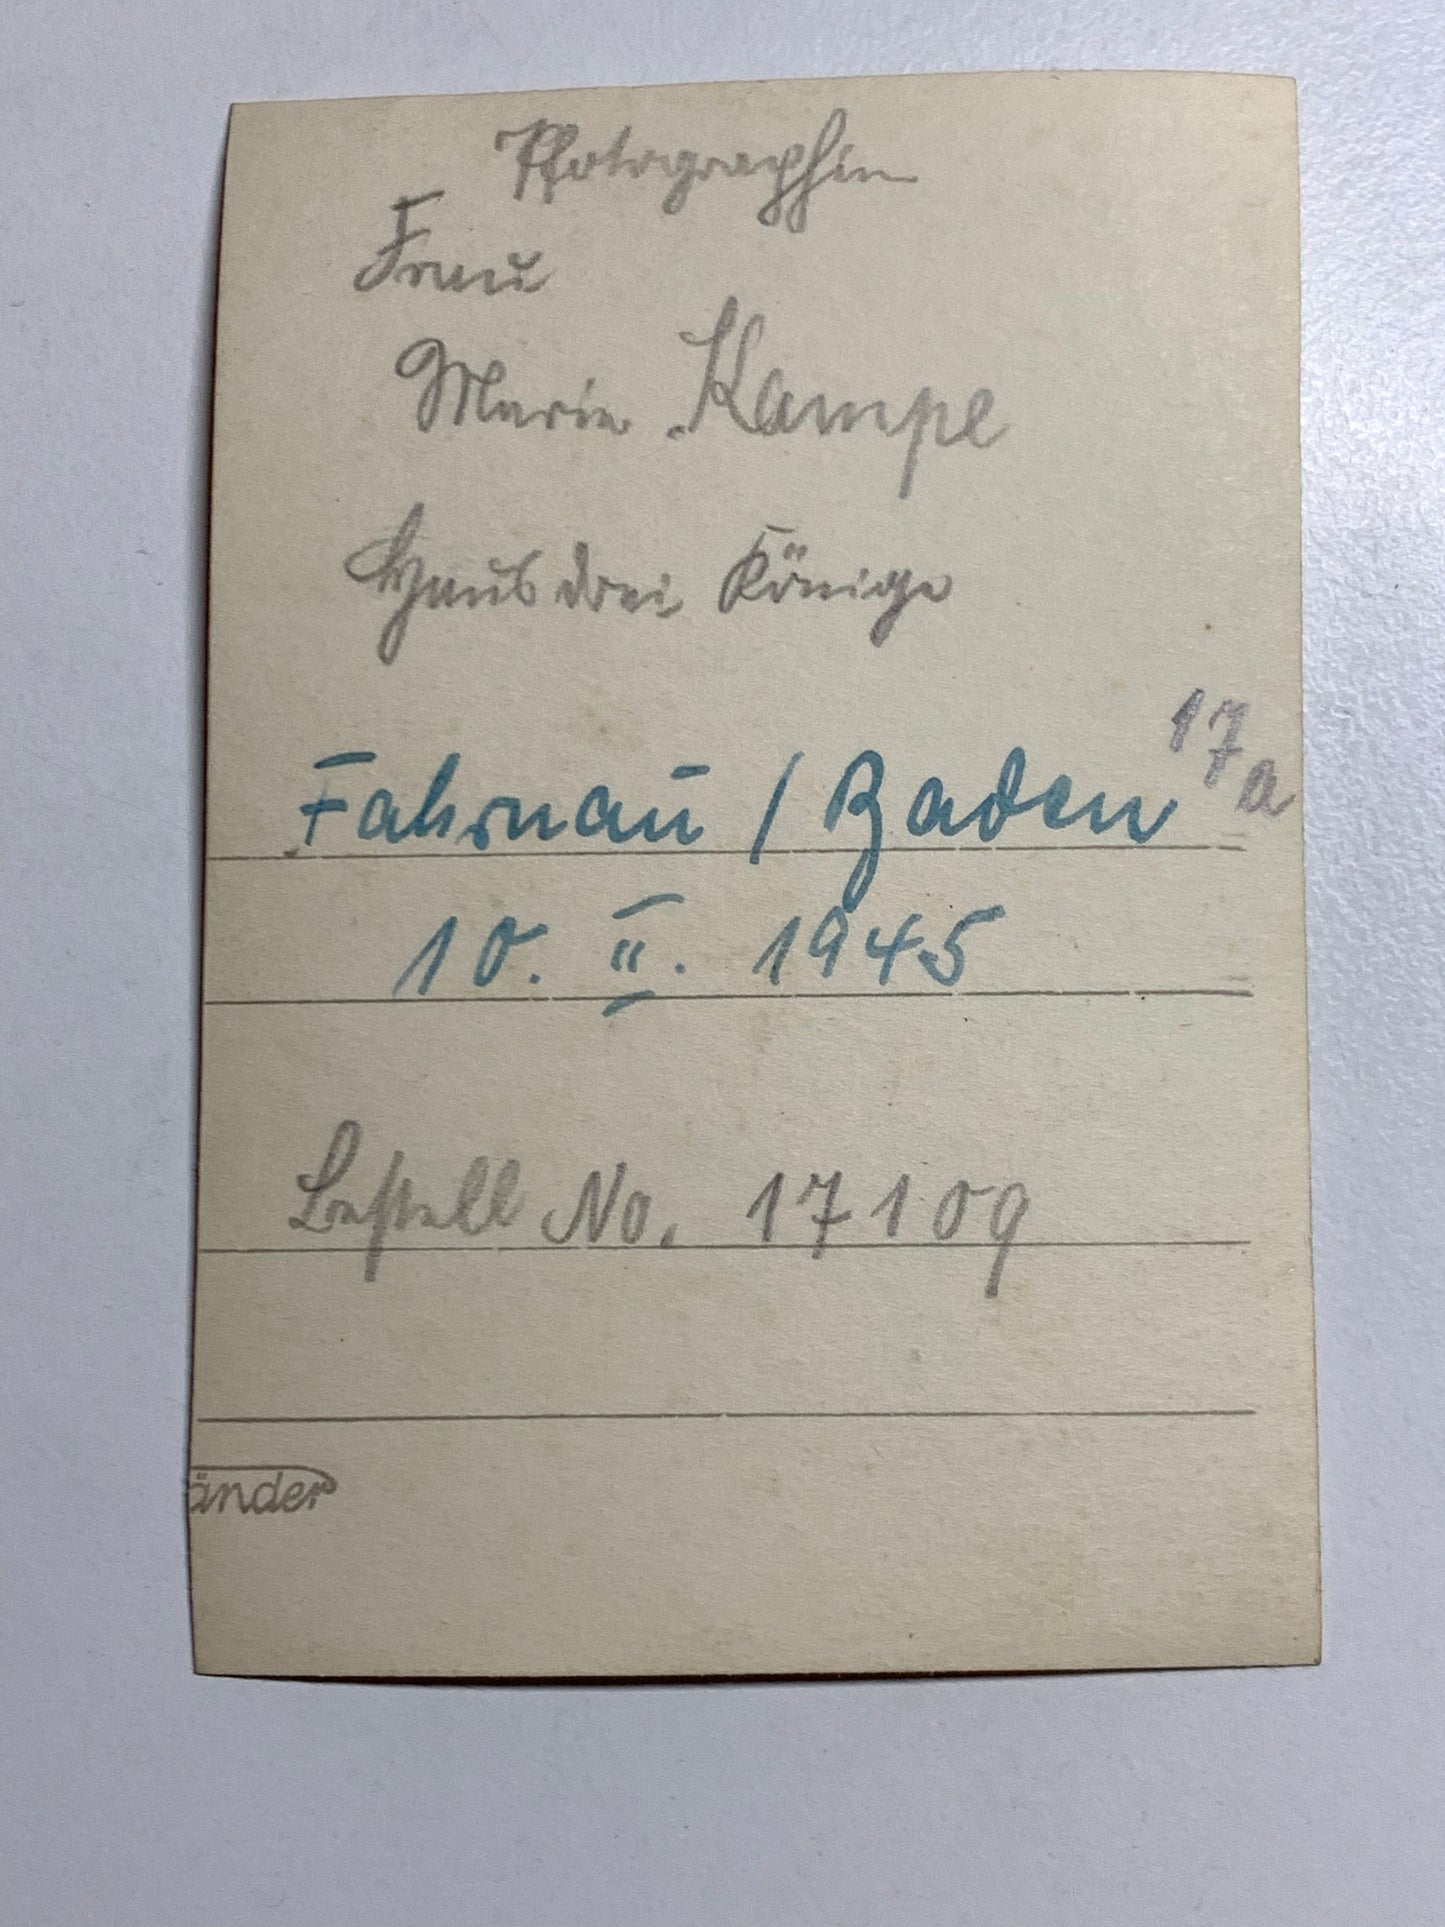 Photographin
Frau
Marie Kampe
Haus drei Könige
17a
Fahrnau / Baden
10. II. 1945
Bestell No. 17109
änder